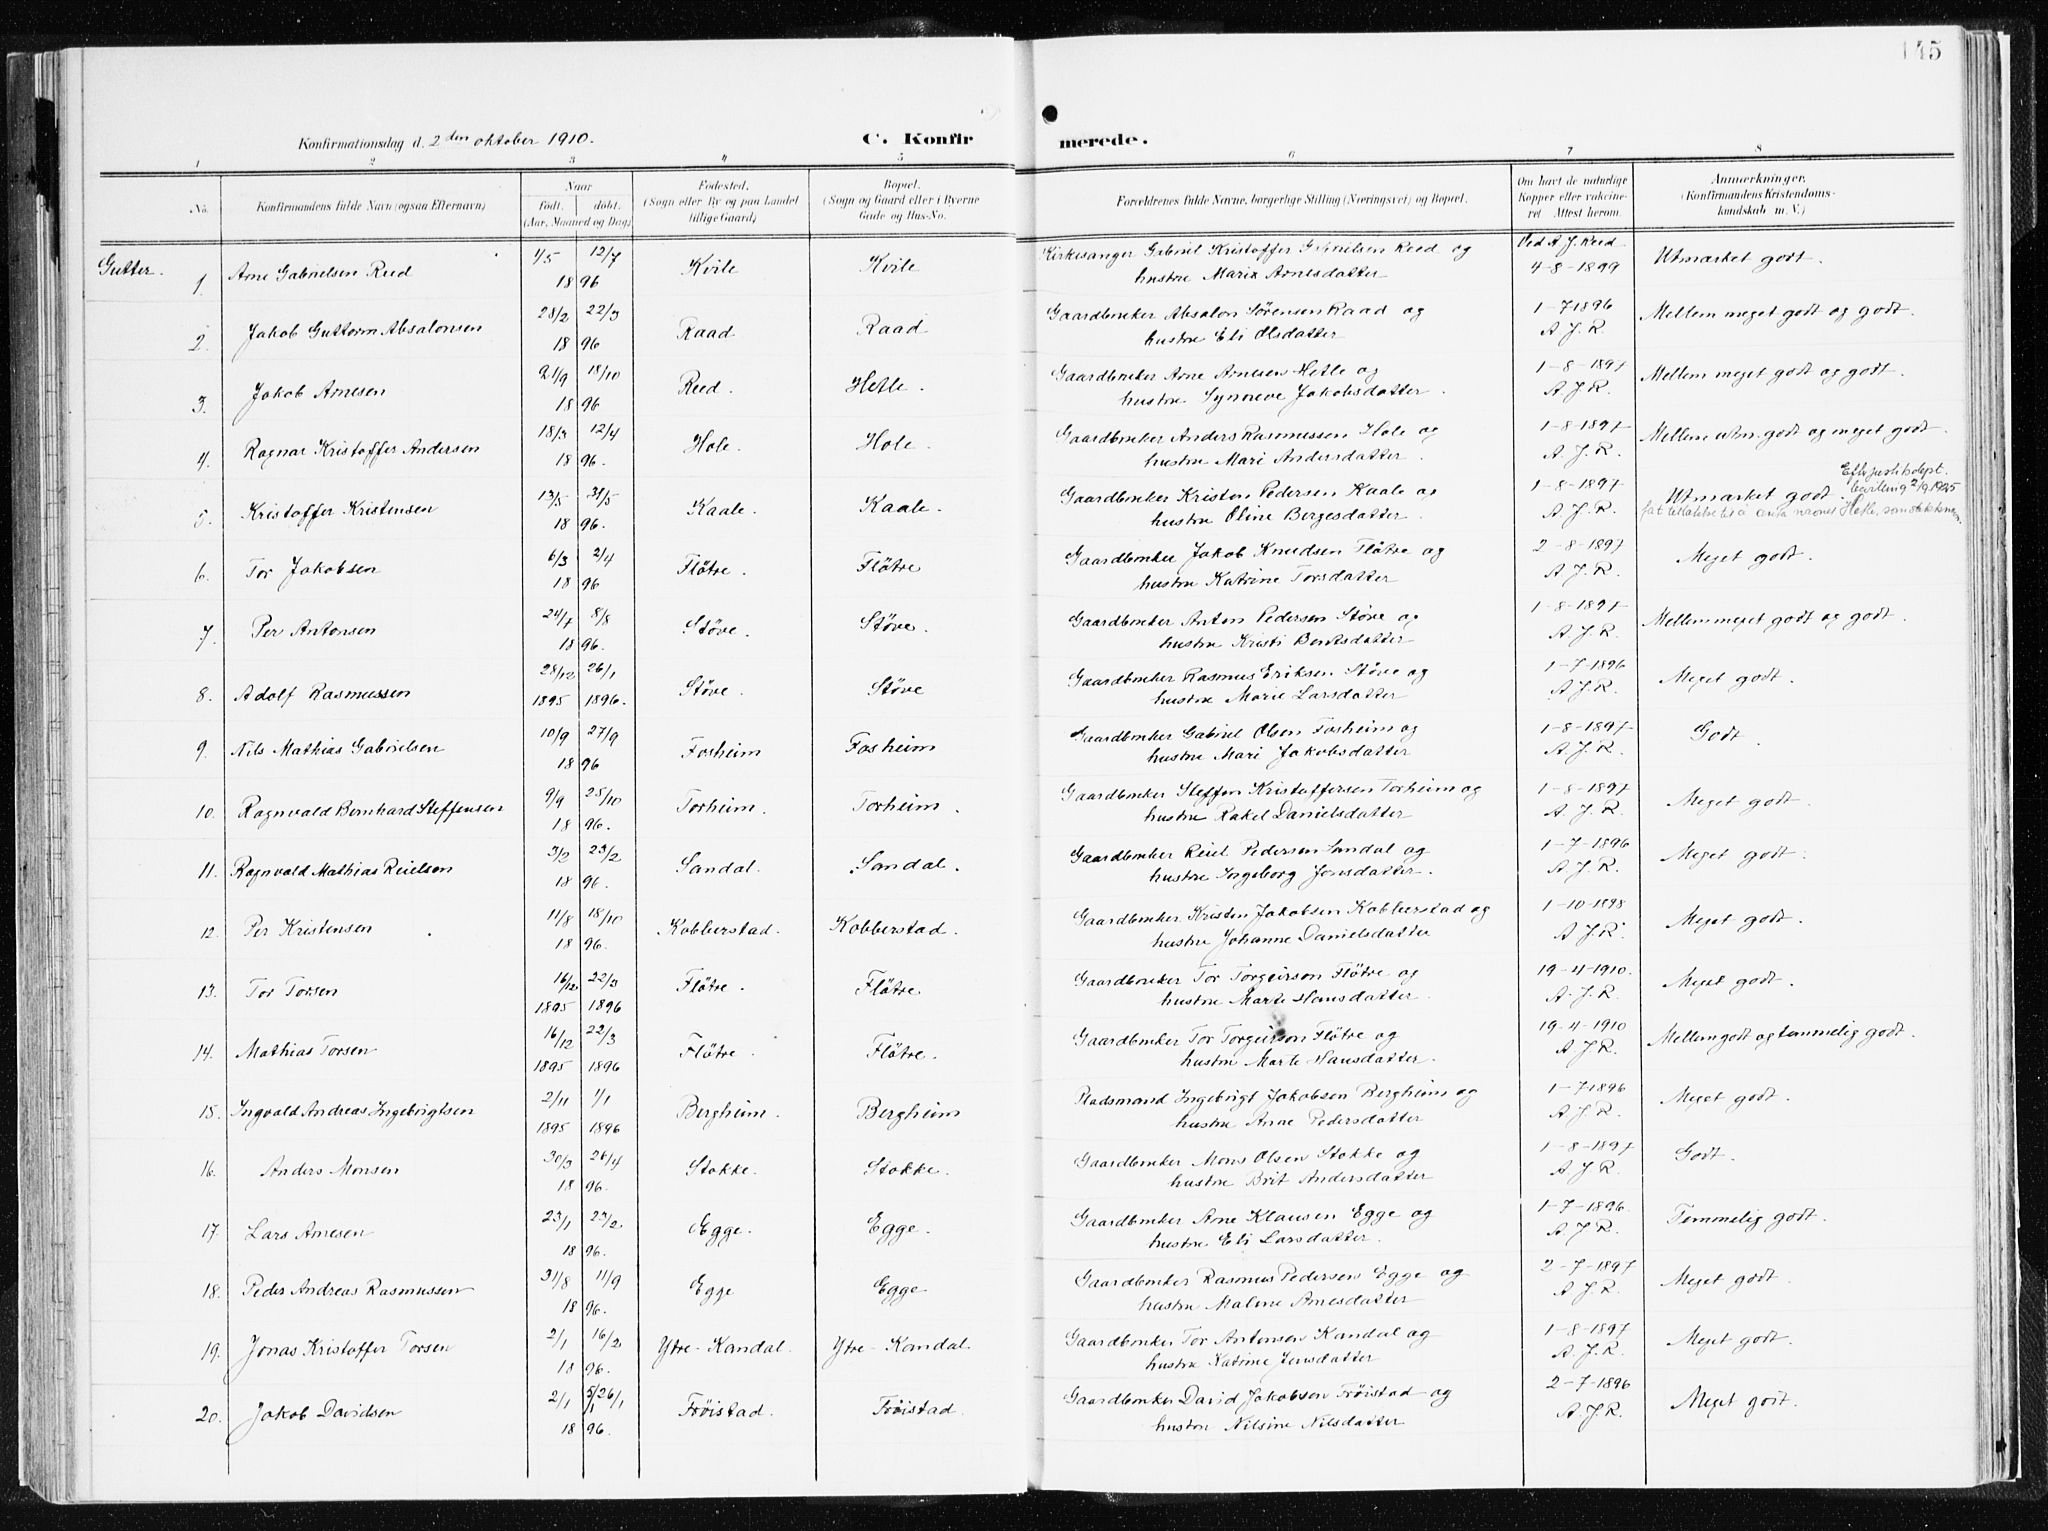 145
Konfirmationsdag d. 2den oktober 1910.
C. Konfirmerede.
1 2 3 4 5 6 7 8
No. Konfirmandens fulde Navn (ogsaa Efternavn) Naar født. døbt. (Aar, Maaned og Dag) Fødested. (Sogn eller By og paa Landet tillige Gaard) Bopæl. (Sogn og Gaard eller i Byerne Gade og Hus-No. Forældrenes fulde Navne, borgerlige Stilling (Næringsvei) og Bopæl. Om havt de naturlige Kopper eller vakcineret Attest herom. Anmærkninger. (Konfirmandens Kristendomskundskab m. V.)
Gutter.
1. Arne Gabrielsen Reed 1/5 12/7 1896 Kvile Kvile Kirkesanger Gabriel Kristoffer Gabrielsen Reed og hustru Maria Arnesdatter Ved A J. Reed 4-8-1899 Utmærket godt.
2. Jakob Guttorm Absalonsen 28/2 22/3 1896 Raad Raad Gaardbruker Absalon Sørensen Raad og hustru Eli Olsdatter 1-7-1896 A. J. R. Mellem meget godt og godt.
3. Jakob Arnesen 21/9 18/10 1896 Reed. Hetle. Gaardbruker Arne Arnesen Hetle og hustru Synneve Jakobsdatter. 1-8-1897 A. J. R. Mellem meget godt og godt.
4. Ragnar Kristoffer Andersen 18/3 12/4 1896. Hole. Hole. Gaardbruker Anders Rasmussen Hole og hustru Mari Andersdatter. 1-8-1897 A. J. R. Mellem utm. godt og meget godt.
5. Kristoffer Kristensen 13/5 31/5 1896. Kaale. Kaale. Gaardbruker Kristen Pedersen Kaale og hustru Oline Bergesdatter. 1-8-1897 A. J. R. Utmærket godt. Efly justitsdept. bevilling 2/9 1925
6. Tor Jakobsen 6/3 2/4 1896 Fløtre. Fløtre Gaardbruker Jakob Knudsen Fløtre og hustru Katrine Torsdatter 2-8-1897 A. J. R. Meget godt.
7. Per Antonsen 24/7 8/8 1896. Støve. Støve. Gaardbruker Anton Pedersen Støve og hustru Kristi Bentsdatter 1-8-1897 A. J. R. Mellem meget godt og godt.
8. Adolf Rasmussen 28/12 1895 26/1 1896. Støve. Støve Gaardbruker Rasmus Eriksen Støve og hustru Marie Larsdatter 1-7-1896 A. J. R. Meget godt.
9. Nils Mathias Gabrielsen 10/9 27/9 1896 Fosheim Fosheim Gaardbruker Gabriel Olsen Fosheim og hustru Mari Jakobsdatter 1-8-1897 A. J. R. Godt.
10. Ragnvald Bernhard Steffensen 9/9 25/10 1896. Torheim. Torheim. Gaardbruker Steffen Kristoffersen Torheim og hustru Rakel Danielsdatter 1-8-1897 A. J. R. Meget godt.
11. Ragnvald Mathias Reielsen 3/2 23/2 1896. Sandal. Sandal. Gaardbruker Reiel Pedersen Sandal og hustru Ingeborg Jonsdatter. 1-7-1896 A. J. R. Meget godt.
12. Per Kristensen 11/8 18/10 1896. Kobberstad. Kobberstad. Gaardbruker Kristen Jakobsen Kobberstad og hustru Johanne Danielsdatter 1-10-1898 A. J. R. Meget godt.
13. Tor Torsen 16/12 1895 22/3 1896 Fløtre. Fløtre Gaardbruker Tor Torgeirson Fløtre og hustru Marte Hansdatter. 19-4-1910. A. J. R. Meget godt.
14. Mathias Torsen 16/12 1895 22/3 1896 Fløtre. Fløtre. Gaardbruker Tor Torgeirson Fløtre og hustru Marte Hansdatter. 19-4-1910 A. J. R. Mellem godt og temmelig godt.
15. Ingvald Andreas Ingebrigtsen 2/11 1895 1/1 1896 Bergheim. Bergheim Pladsmand Ingebrigt Jakobsen Bergheim og hustru Anne Pedersdatter 1-7-1896 A. J. R. Meget godt.
16. Anders Monsen 30/3 26/4 1896. Stokke. Stokke. Gaardbruker Mons Olsen Stokke og hustru Brit Andersdatter 1-8-1897 A. J. R. Godt.
17. Lars Arnesen 23/1 23/2 1896. Egge. Egge. Gaardbruker Arne Klausen Egge og hustru Eli Larsdatter. 1-7-1896. A. J. R. Temmelig godt.
18. Peder Andreas Rasmussen 31/8 11/9 1896. Egge Egge Gaardbruker Rasmus Pedersen Egge og hustru Malene Arnesdatter 2-7-1897 A. J. R. Meget godt.
19. Jonas Kristoffer Torsen 2/1 16/2 1896. Ytre-Kandal. Ytre-Kandal. Gaardbruker Tor Antonsen Kandal og hustru Katrine Jensdatter 1-8-1897 A. J. R. Meget godt.
20. Jakob Davidsen 2/1 5/1 26/1 1896. Frøistad. Frøistad. Gaardbruker David Jakobsen Frøistad og hustru Nilsine Nilsdatter 2-7-1896 A. J. R. Meget godt.